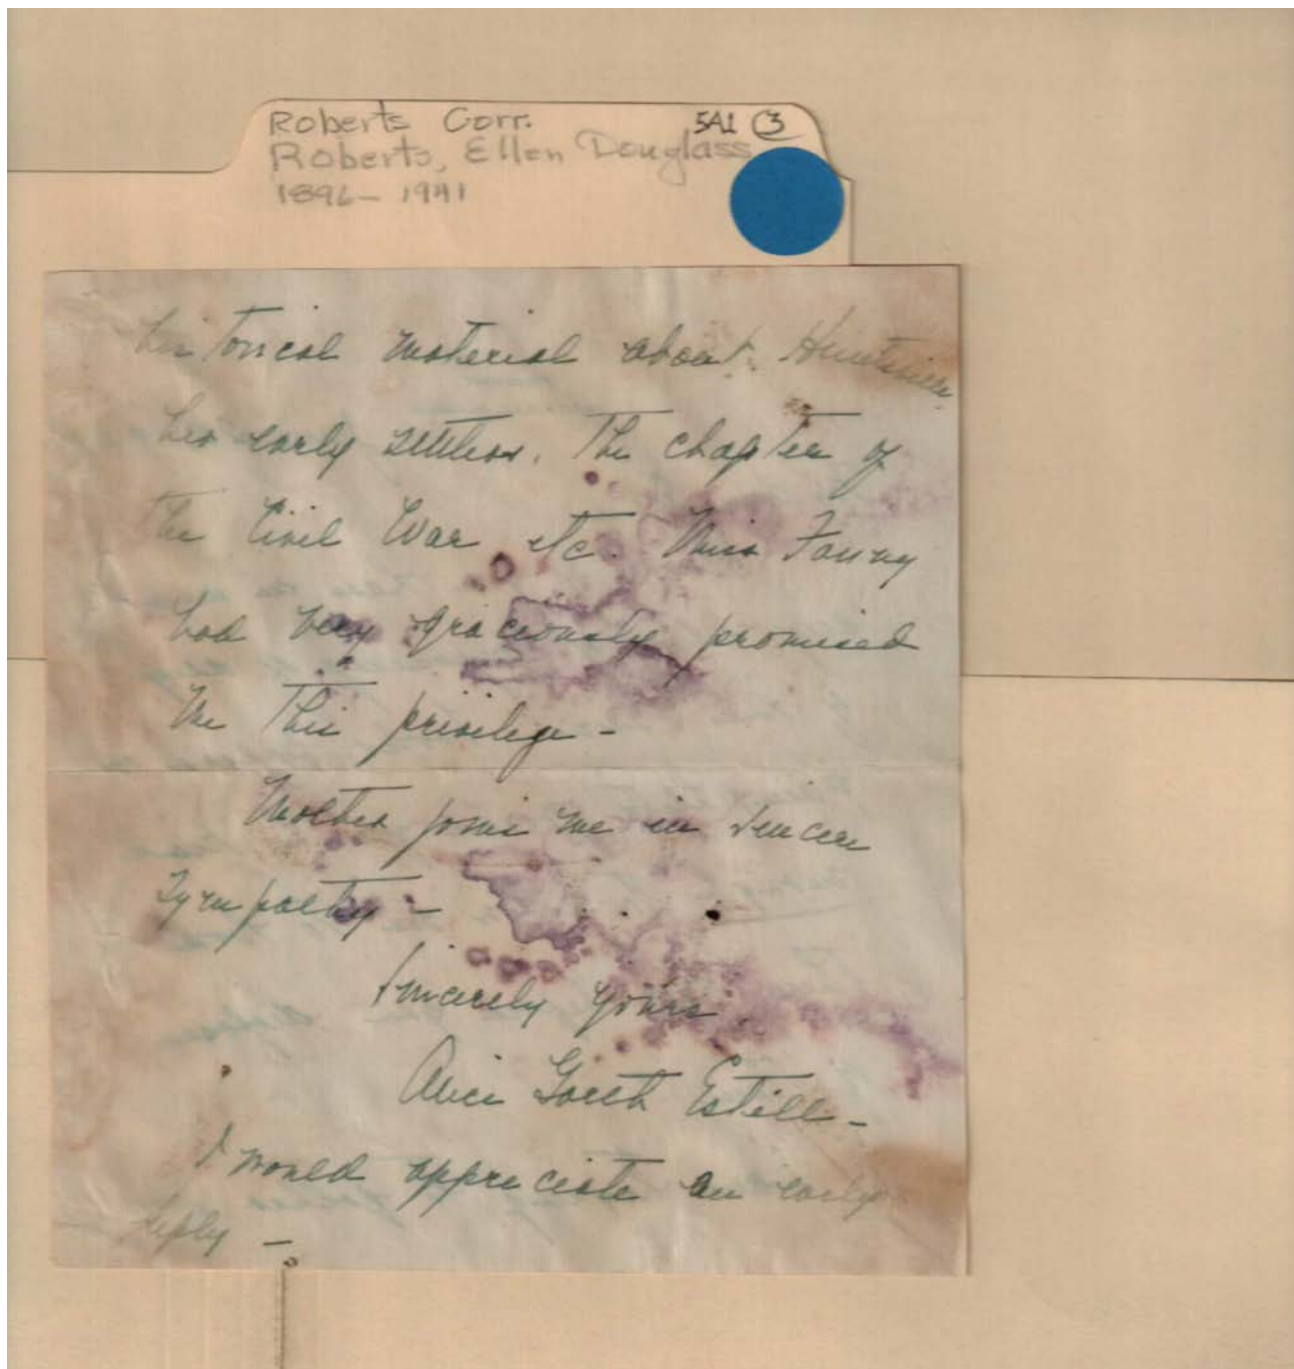 Roberts Corr. 5A1 3
Roberts, Ellen Douglass
1896 - 1941
historical material about Huntsville
her early settlers. The chapter of
the Civil War etc. Miss Fanny
had very graciously promised
me this privilige -
Mother joins me in sincere
sympathy -
Sincerely yours
Alice Estill -
I would appreciate an early
reply -